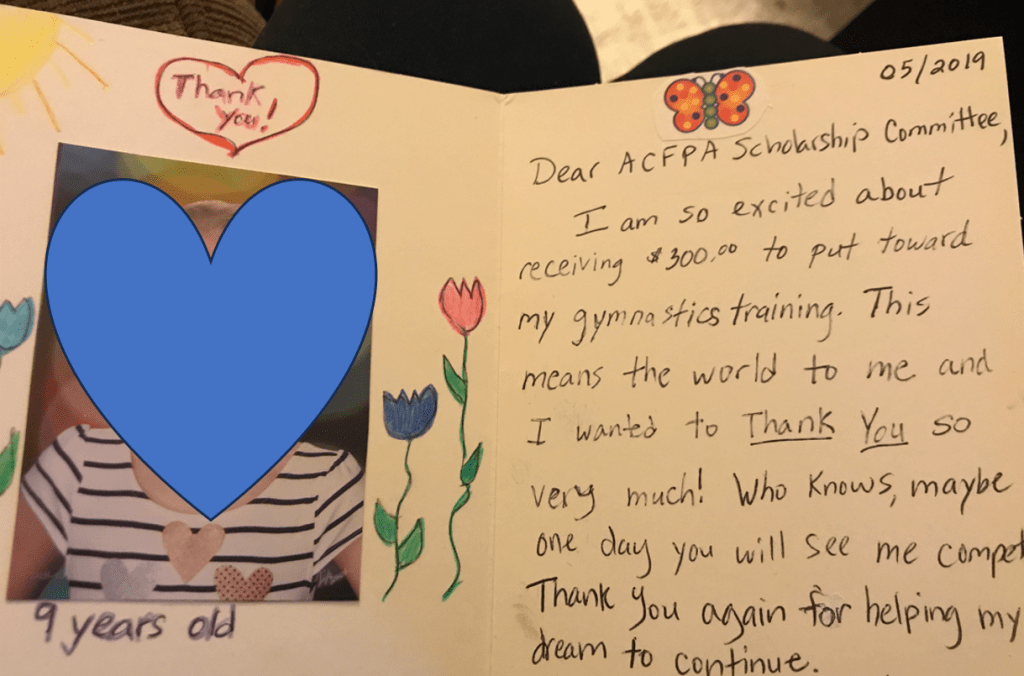 Thank
you!
9 years old
05/2019
Dear ACFPA Scholarship Committee,
I am so excited about
receiving $300.00 to put toward
my gymnastics training. This
means the world to me and
I wanted to Thank You so
very much! Who knows, maybe
one day you will see me compet
Thank you again for helping my
dream to continue.